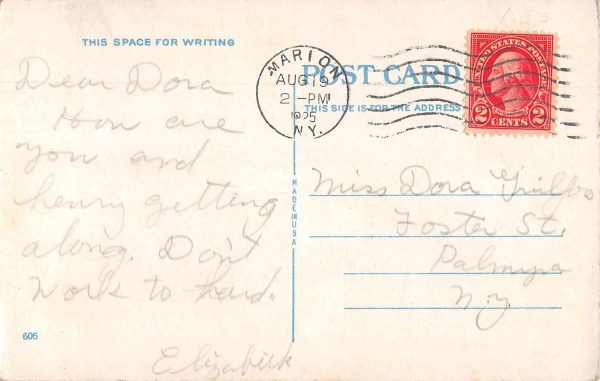 THIS SPACE FOR WRITING
Dear Dora
How are
you and
henry getting
along. Don't
work to hard.
Elizabeth
605
MADE IN USA
MARION
AUG 19
2-PM
1925
N.Y.
POST CARD
THIS SIDE IS FOR THE ADDRESS
UNITED STATES POSTAGE
2 CENTS 2
Miss Dora
Foster St.
Palmyra
N.Y.